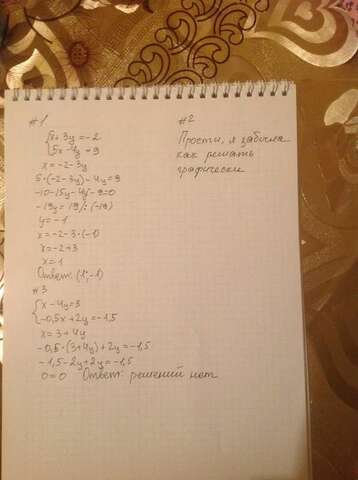 #1
{x+3y=-2
5x-4y=9
x=-2-3y
5·(-2-3y)-4y=9
-10-15y-4y-9=0
-19y=19/:(-19)
y=-1
x=-2-3·(-1)
x=-2+3
x=1
Ответ: (1;-1)
#3
{x-4y=3
-0,5x+2y=-1,5
x=3+4y
-0,5·(3+4y)+2y=-1,5
-1,5-2y+2y=-1,5
0=0 Ответ: решений нет
#2
Прости, я забыла
как решать
графически